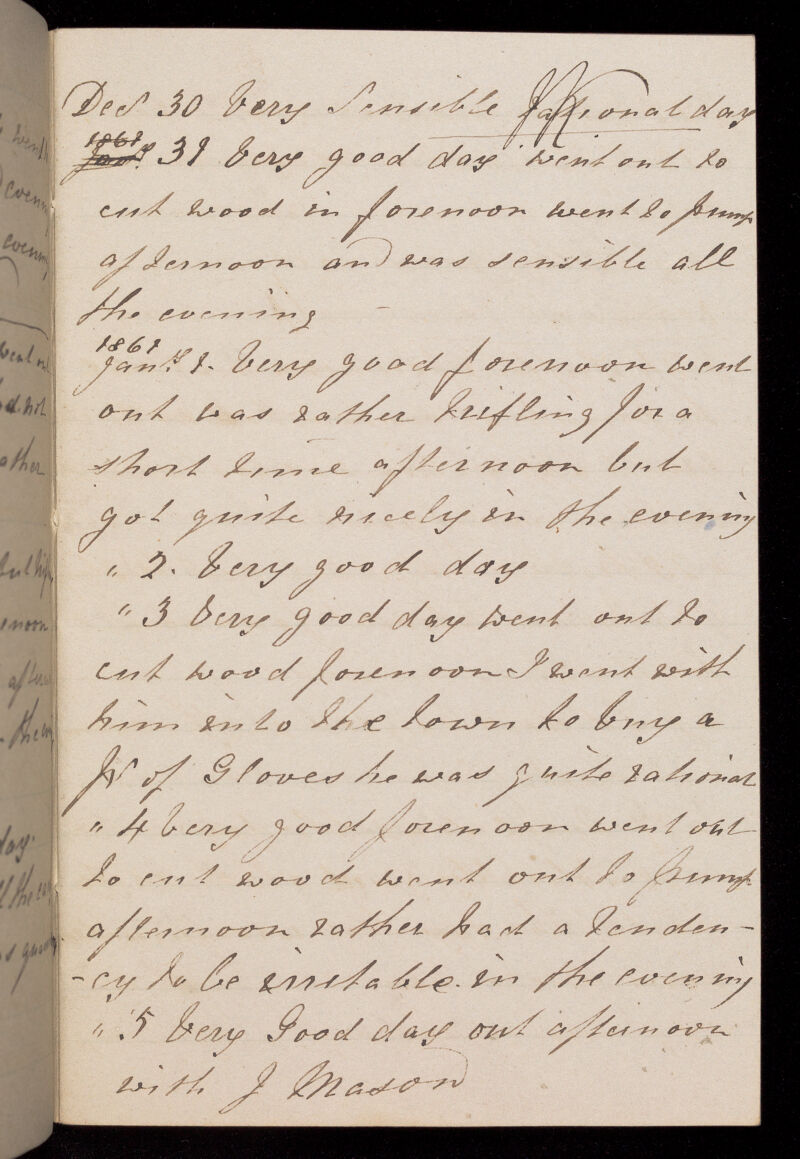 Decr 30 Very Sensible Rational day
1861
Jany. 31 Very good day went out to
cut wood in forenoon went to pump
afternoon and was sensible all
the evening
1861
Jany. 1. Very good forenoon went
out was rather trifling for a
short time afternoon but
got quite nicely in the evening
" 2. Very good day
" 3 Very good day went out to
cut wood forenoon I went with
him into the town to buy a
Pr of Gloves he was quite rational
" 4 Very good forenoon went out
to cut wood went out to pump
afternoon rather had a tenden-
-cy to be irritable. in the evening
" 5 Very Good day out afternoon
with J Mason